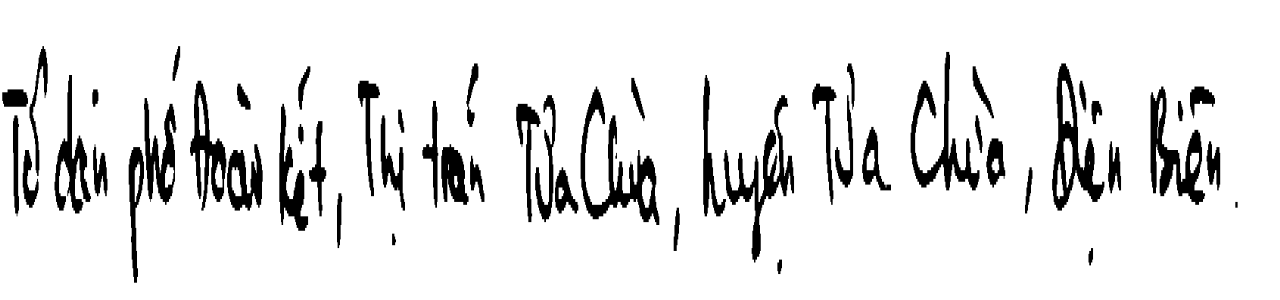 Tổ dân phố Đoàn Kết, Thị trấn Tủa Chùa, huyện Tủa Chùa, Điện Biên.